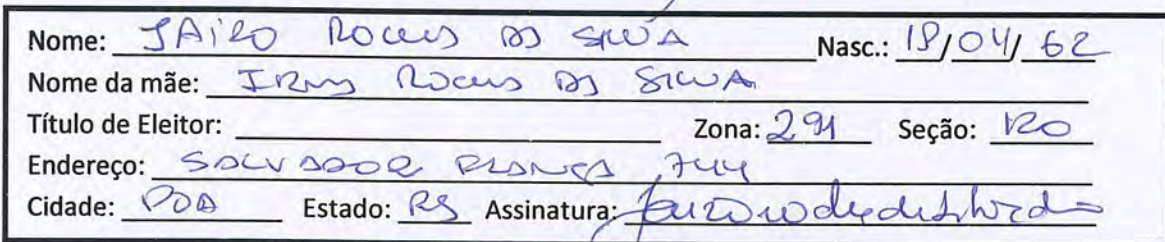 Nome: JAIRO ROCHA DA SILVA Nasc.: 18/04/62
Nome da mãe: ROCHA DA SILVA
Título de Eleitor: Zona: 291 Seção: 120
Endereço: SALVADOR FRANÇA 744
Cidade: POA Estado: RS Assinatura: